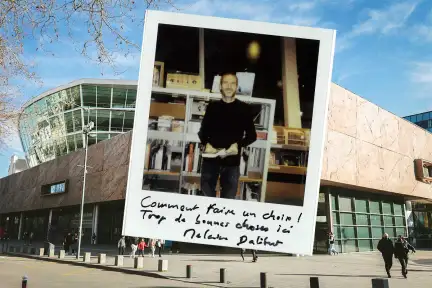 Comment faire un choix !
Trop de bonnes choses ici
Malavan Dalibert